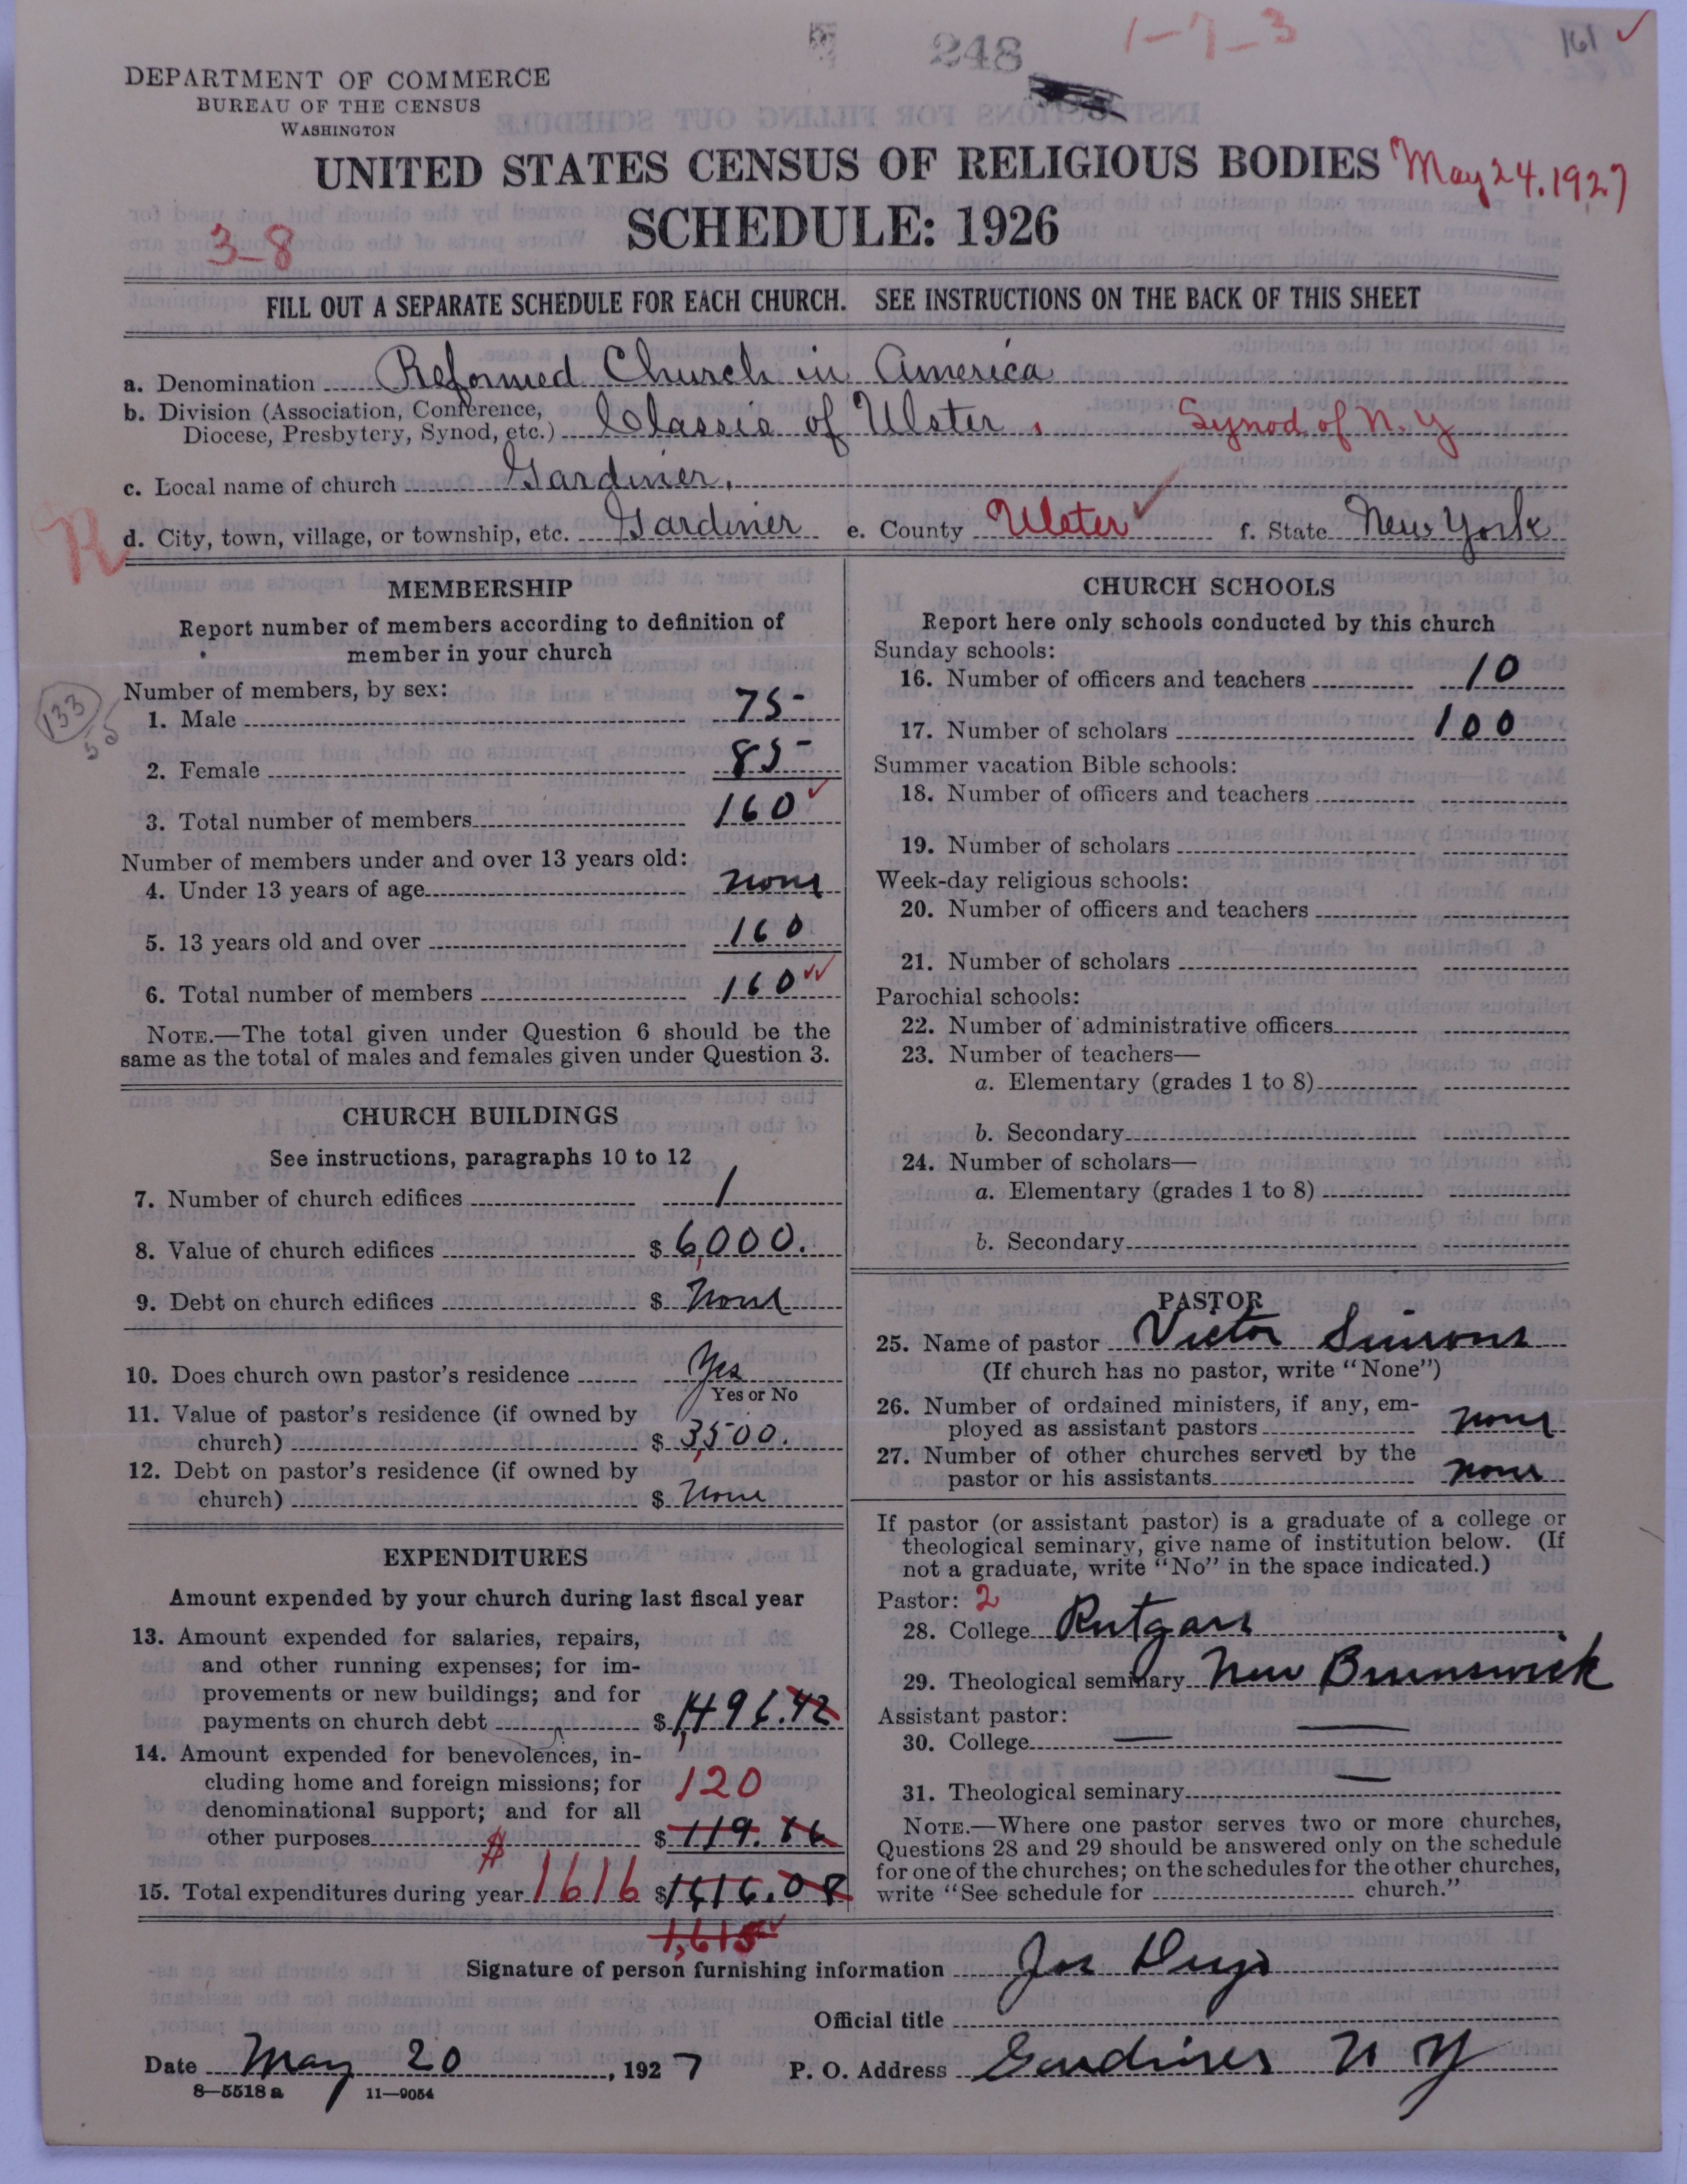 248
1-7-3
161
DEPARTMENT OF COMMERCE
BUREAU OF THE CENSUS
WASHINGTON
UNITED STATES CENSUS OF RELIGIOUS BODIES
May 24, 1927
SCHEDULE: 1926
3-8
FILL OUT A SEPARATE SCHEDULE FOR EACH CHURCH. SEE INSTRUCTIONS ON THE BACK OF THIS SHEET
a. Denomination Reformed Church in America
b. Division (Association, Conference,
Diocese, Presbytery, Synod, etc.) Classis of Ulster. Synod of N.Y
c. Local name of church Gardiner.
R
d. City, town, village, or township, etc. Gardiner e. County Ulster f. State New York
MEMBERSHIP
Report number of members according to definition of
member in your church
Number of members, by sex:
133
55
1. Male 75
2. Female 85
3. Total number of members 160
Number of members under and over 13 years old:
4. Under 13 years of age none
5. 13 years old and over 160
6. Total number of members 160
NOTE.—The total given under Question 6 should be the
same as the total of males and females given under Question 3.
CHURCH BUILDINGS
See instructions, paragraphs 10 to 12
7. Number of church edifices 1
8. Value of church edifices $ 6,000.
9. Debt on church edifices $ None
10. Does church own pastor's residence Yes
Yes or No
11. Value of pastor's residence (if owned by
church) $ 3,500.
12. Debt on pastor's residence (if owned by
church) $ None
EXPENDITURES
Amount expended by your church during last fiscal year
13. Amount expended for salaries, repairs,
and other running expenses; for im-
provements or new buildings; and for
payments on church debt $ 1,496.42
14. Amount expended for benevolences, in-
cluding home and foreign missions; for
120
denominational support; and for all
other purposes $ 119.66
$
15. Total expenditures during year 1616 $ 1616.08
1,615
CHURCH SCHOOLS
Report here only schools conducted by this church
Sunday schools:
16. Number of officers and teachers 10
17. Number of scholars 100
Summer vacation Bible schools:
18. Number of officers and teachers
19. Number of scholars
Week-day religious schools:
20. Number of officers and teachers
21. Number of scholars
Parochial schools:
22. Number of administrative officers
23. Number of teachers—
a. Elementary (grades 1 to 8)
b. Secondary
24. Number of scholars—
a. Elementary (grades 1 to 8)
b. Secondary
PASTOR
25. Name of pastor Victor Simons
(If church has no pastor, write "None")
26. Number of ordained ministers, if any, em-
ployed as assistant pastors none
27. Number of other churches served by the
pastor or his assistants none
If pastor (or assistant pastor) is a graduate of a college or
theological seminary, give name of institution below. (If
not a graduate, write "No" in the space indicated.)
Pastor: 2
28. College Rutgars
29. Theological seminary New Brunswick
Assistant pastor:
30. College
31. Theological seminary
NOTE.—Where one pastor serves two or more churches,
Questions 28 and 29 should be answered only on the schedule
for one of the churches; on the schedules for the other churches,
write "See schedule for church."
Signature of person furnishing information Jos
Official title
Date May 20, 1927 P. O. Address Gardiner N Y
8—5518 a 11—9054